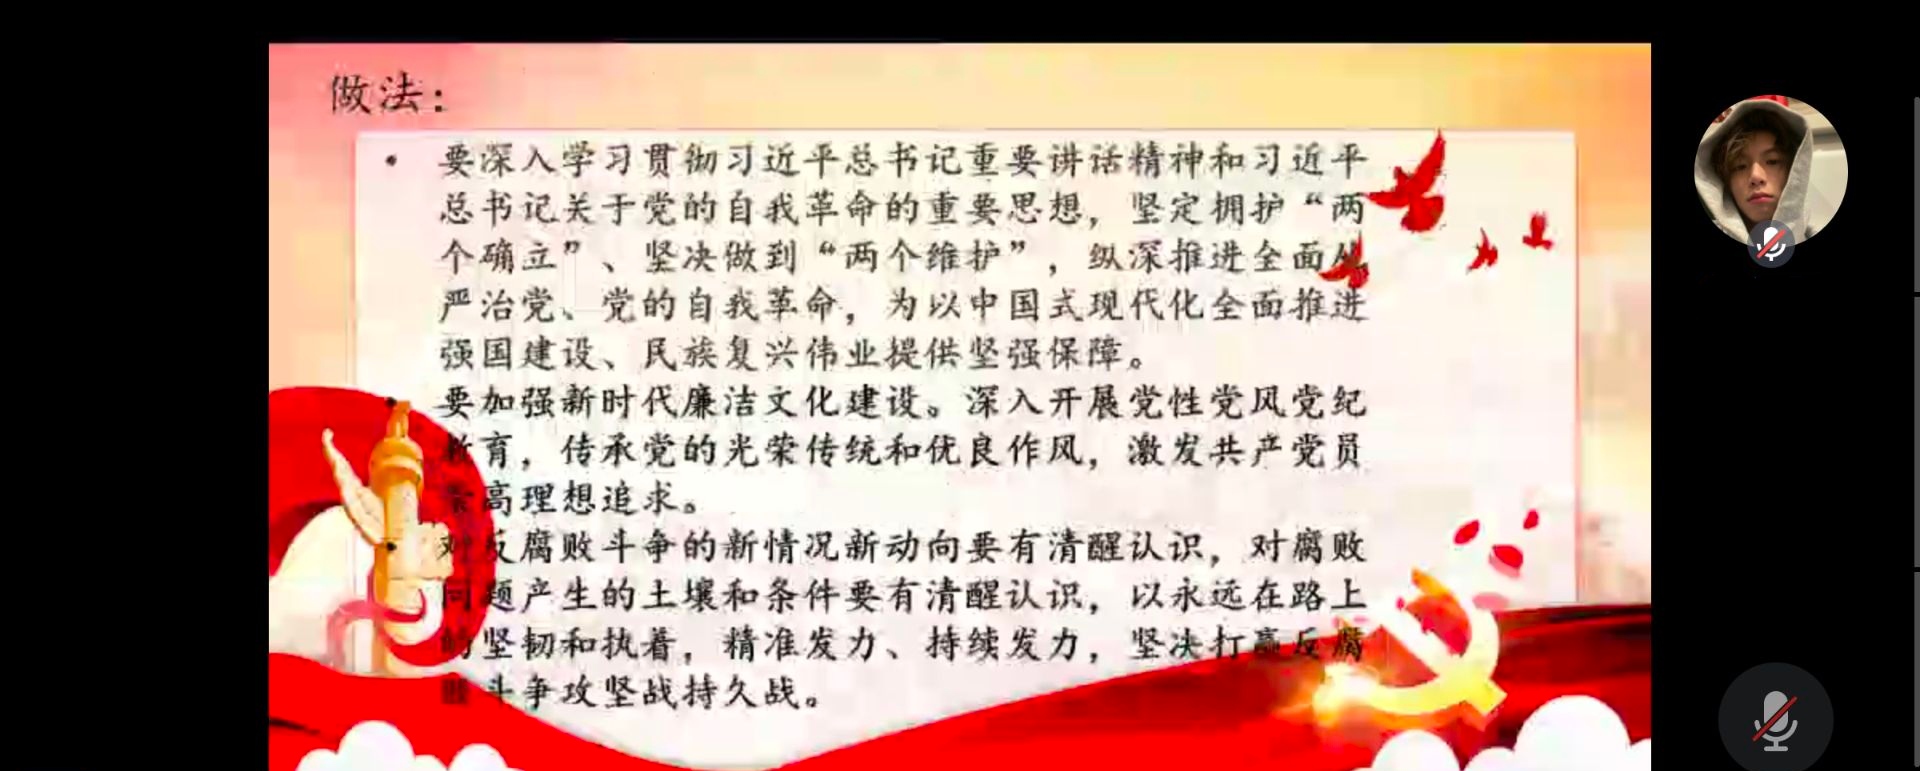 做法：
• 要深入学习贯彻习近平总书记重要讲话精神和习近平
总书记关于党的自我革命的重要思想，坚定拥护“两
个确立”、坚决做到“两个维护”，纵深推进全面从
严治党、党的自我革命，为以中国式现代化全面推进
强国建设、民族复兴伟业提供坚强保障。
• 要加强新时代廉洁文化建设。深入开展党性党风党纪
教育，传承党的光荣传统和优良作风，激发共产党员
崇高理想追求。
• 对反腐败斗争的新情况新动向要有清醒认识，对腐败
问题产生的土壤和条件要有清醒认识，以永远在路上
的坚韧和执着，精准发力、持续发力，坚决打赢反腐
败斗争攻坚战持久战。